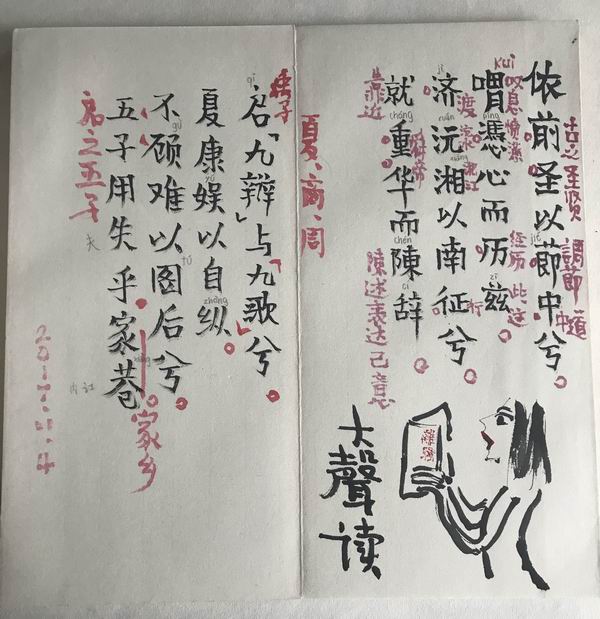 依前圣以節中兮。
古之圣贤
調節
中道
喟憑心而历兹
kuì
叹息愤懑
经历
此、这
济沅湘以南征兮。
jì
渡
yuán
xiāng
沅江
行
就重华而陳辞
靠近
chóng
chén
cí
陳述表达己意
夏、商、周
启「九辩」与「九歌」兮。
qǐ
夏康娱以自纵。
不顾难以图后兮。
gù
tú
五子用失乎家巷。
家乡
内讧
启之五子
2017.11.4
大聲读
離騷